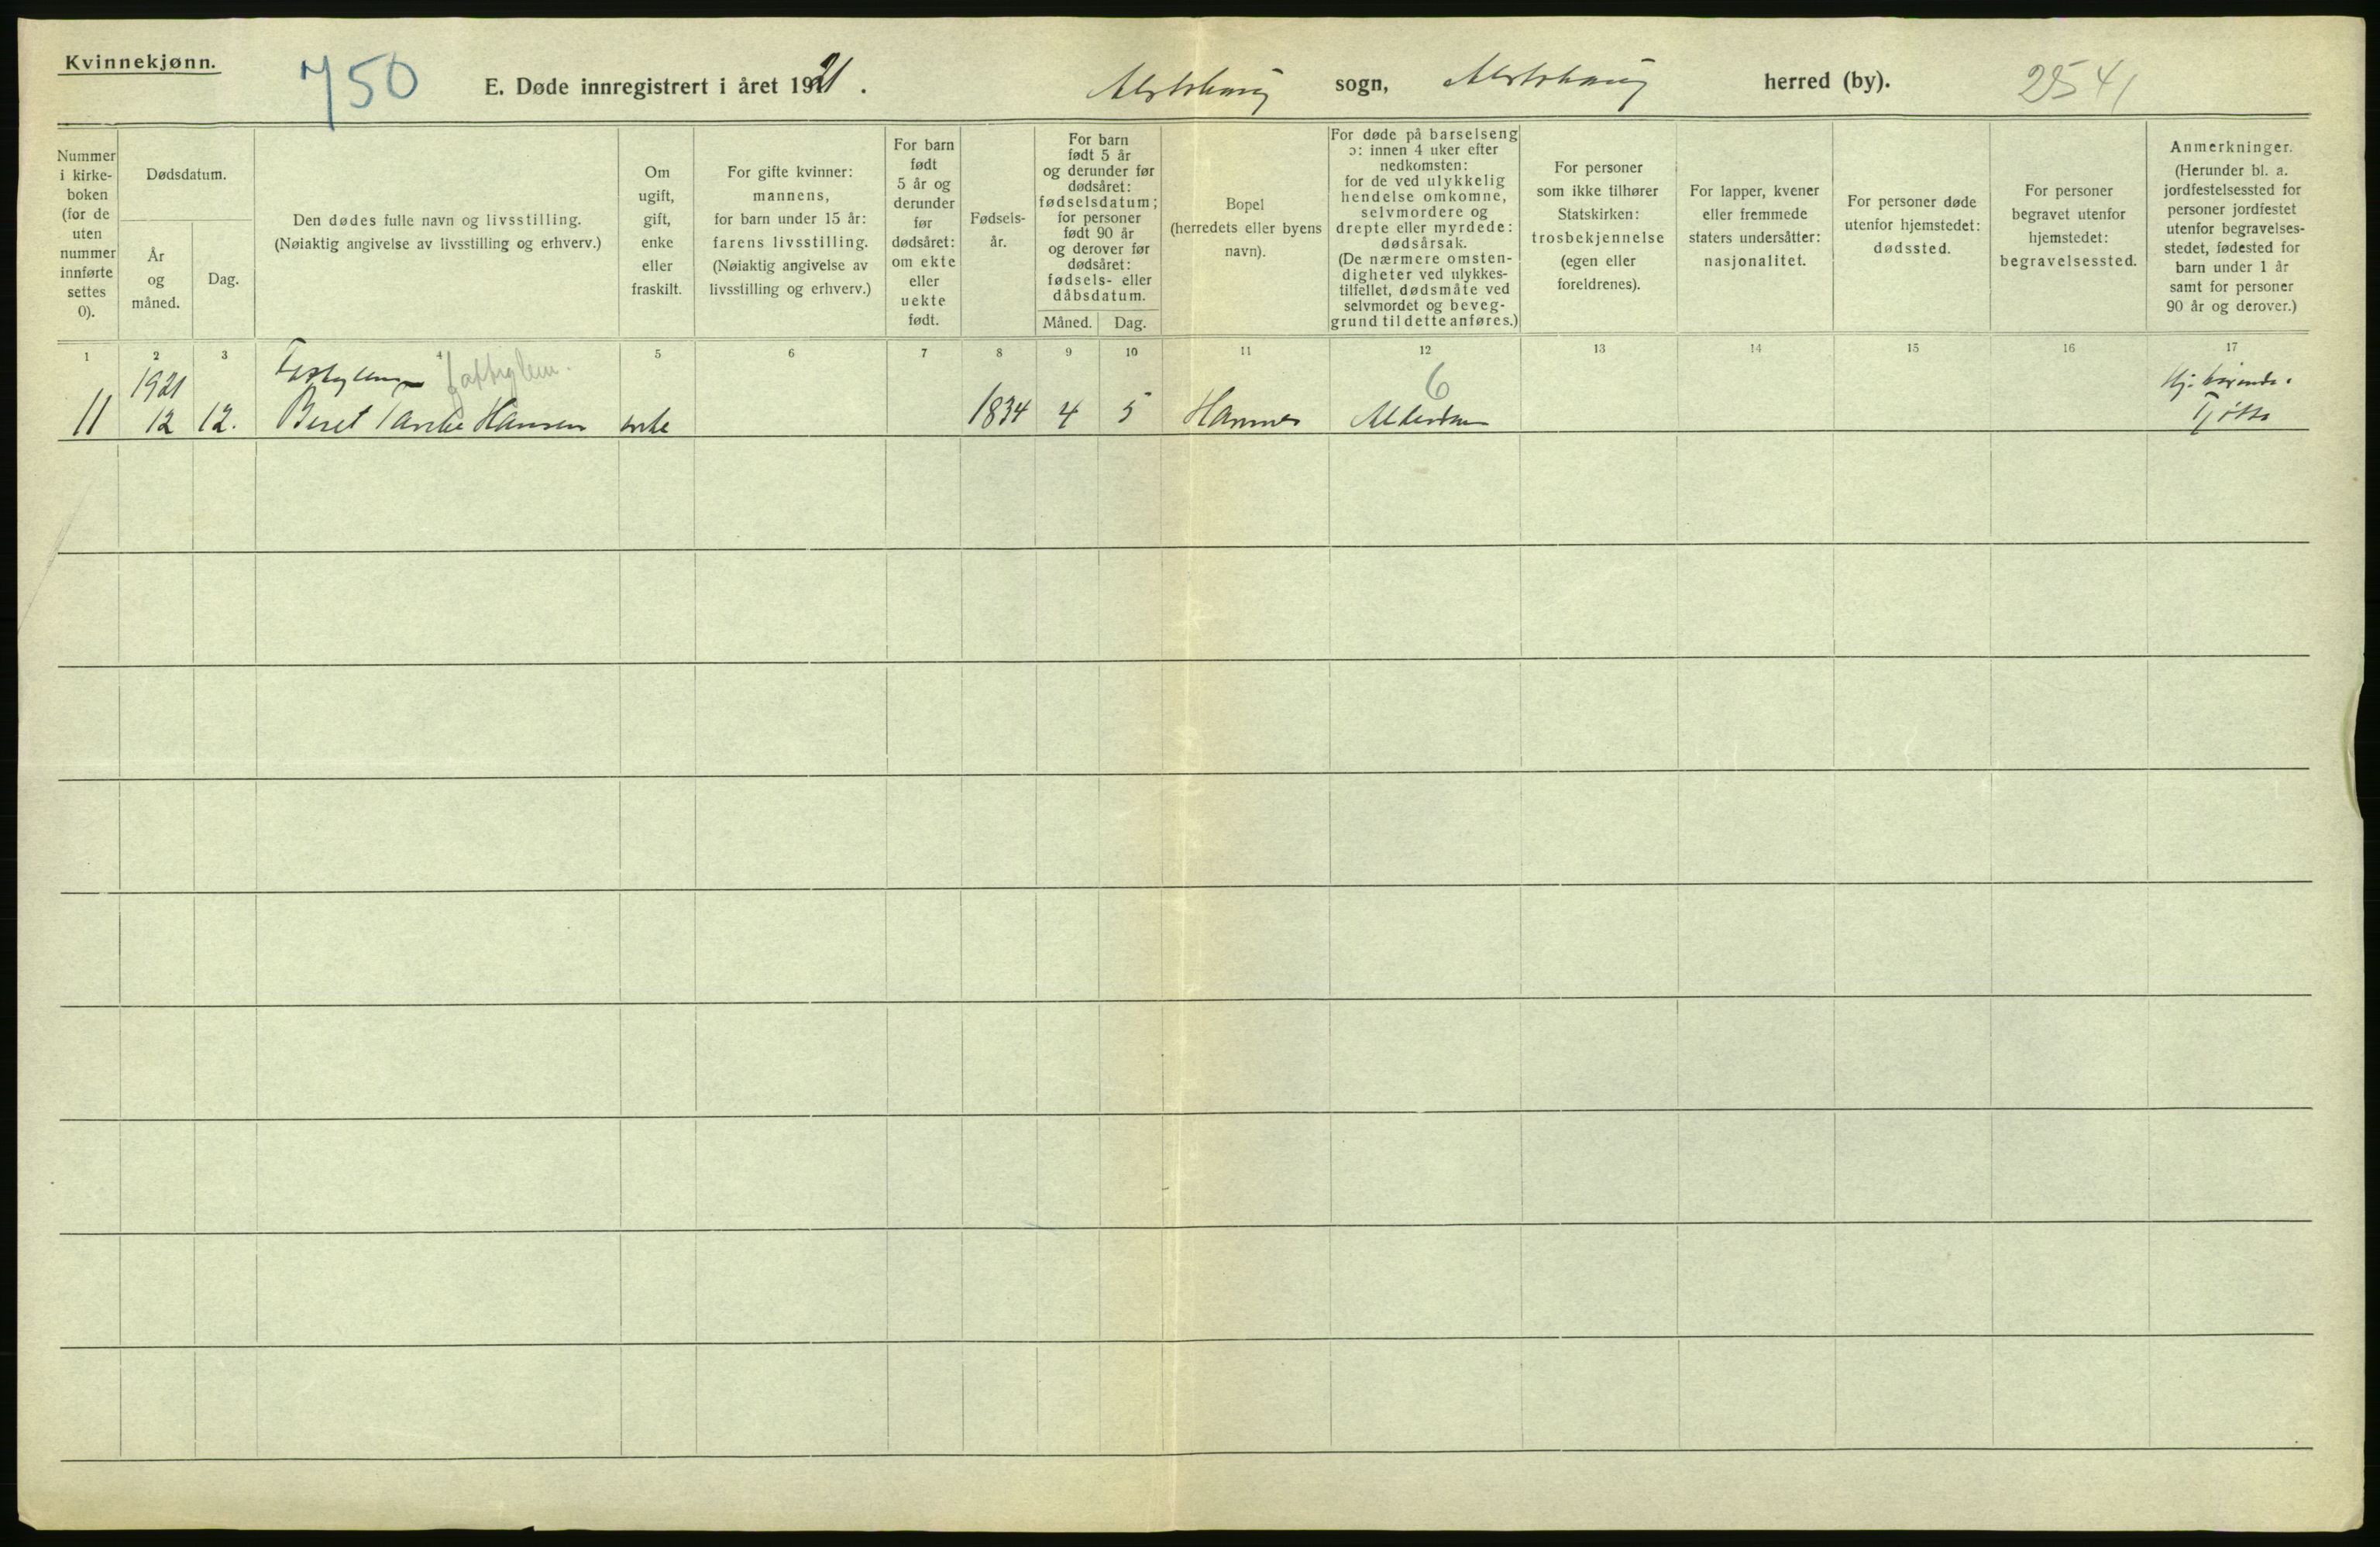 Kvinnekjønn.
750
E. Døde innregistrert i året 1921.
Alstahaug sogn, Alstahaug herred (by).
2541
Nummer
i kirke-
boken
(for de
uten
nummer
innførte
settes
0).
Dødsdatum.
År
og
måned.
Dag.
Den dødes fulle navn og livsstilling.
(Nøiaktig angivelse av livsstilling og erhverv.)
Om
ugift,
gift,
enke
eller
fraskilt.
For gifte kvinner:
mannens,
for barn under 15 år:
farens livsstilling.
(Nøiaktig angivelse av
livsstilling og erhverv.)
For barn
født
5 år og
derunder
før
dødsåret:
om ekte
eller
uekte
født.
Fødsels-
år.
For barn
født 5 år
og derunder før
dødsåret:
fødselsdatum;
for personer
født 90 år
og derover før
dødsåret:
fødsels- eller
dåbsdatum.
Måned.
Dag.
Bopel
(herredets eller byens
navn).
For døde på barselseng
ɔ: innen 4 uker efter
nedkomsten:
for de ved ulykkelig
hendelse omkomne,
selvmordere og
drepte eller myrdede:
dødsårsak.
(De nærmere omsten-
digheter ved ulykkes-
tilfellet, dødsmåte ved
selvmordet og beveg-
grund til dette anføres.)
For personer
som ikke tilhører
Statskirken:
trosbekjennelse
(egen eller
foreldrenes).
For lapper, kvener
eller fremmede
staters undersåtter:
nasjonalitet.
For personer døde
utenfor hjemstedet:
dødssted.
For personer
begravet utenfor
hjemstedet:
begravelsessted.
Anmerkninger.
(Herunder bl. a.
jordfestelsessted for
personer jordfestet
utenfor begravelses-
stedet, fødested for
barn under 1 år
samt for personer
90 år og derover.)
1 2 3 4 5 6 7 8 9 10 11 12 13 14 15 16 17
1921
6
11 12 12. Beret Hansen enke 1834 4 5 Alderdom Tjøtta